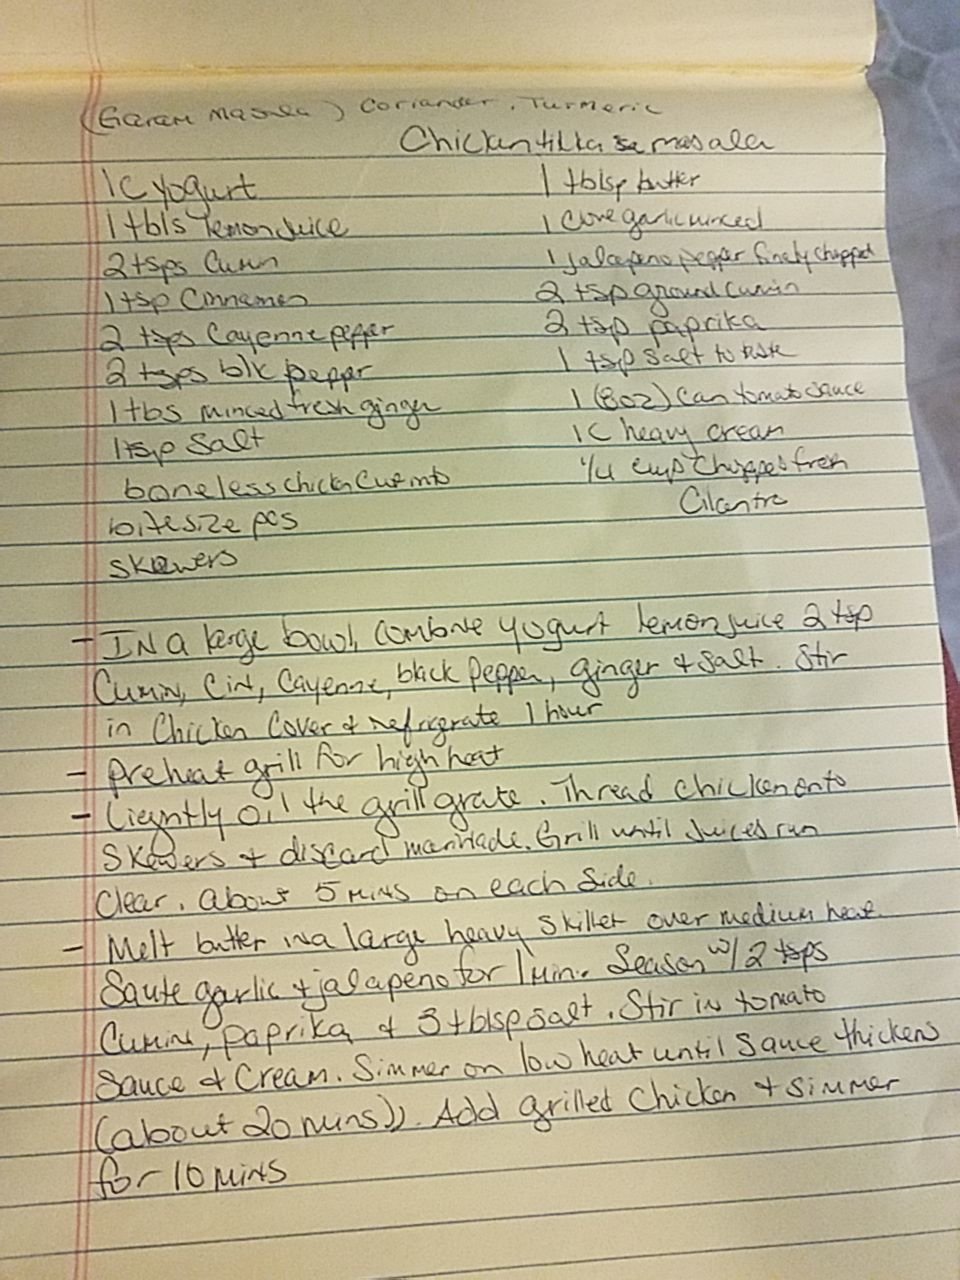 (Garam Masala) Coriander, Turmeric
Chicken tikka masala
1C yogurt
1 tbls lemon Juice
2 tsps Cumin
1 tsp Cinnamon
2 tsps Cayenne pepper
2 tsps blk pepper
1 tbs minced fresh ginger
1 tsp Salt
boneless chicken cut into
bite size pcs
skewers
1 tblsp butter
1 Clove garlic minced
1 jalapeno pepper finely chopped
2 tsp ground cumin
2 tsp paprika
1 tsp salt to taste
1 (8oz) Can tomato sauce
1C heavy cream
1/4 cup chopped fresh
Cilantro
- IN a large bowl, combine yogurt lemon juice 2 tsp
Cumin, Cin, Cayenne, black Pepper, ginger + salt. Stir
in Chicken Cover + refrigerate 1 hour
- Preheat grill for high heat
- Lieghtly oil the grill grate. Thread chicken onto
Skewers + discard marinade. Grill until Juices run
Clear. about 5 mins on each side.
- Melt butter in a large heavy skillet over medium heat.
Saute garlic + jalapeno for 1 min. Season w/ 2 tsps
Cumin, paprika, + 3 tblsp salt. Stir in tomato
Sauce + Cream. Simmer on low heat until sauce thickens
(about 20 mins)). Add grilled Chicken + simmer
for 10 mins